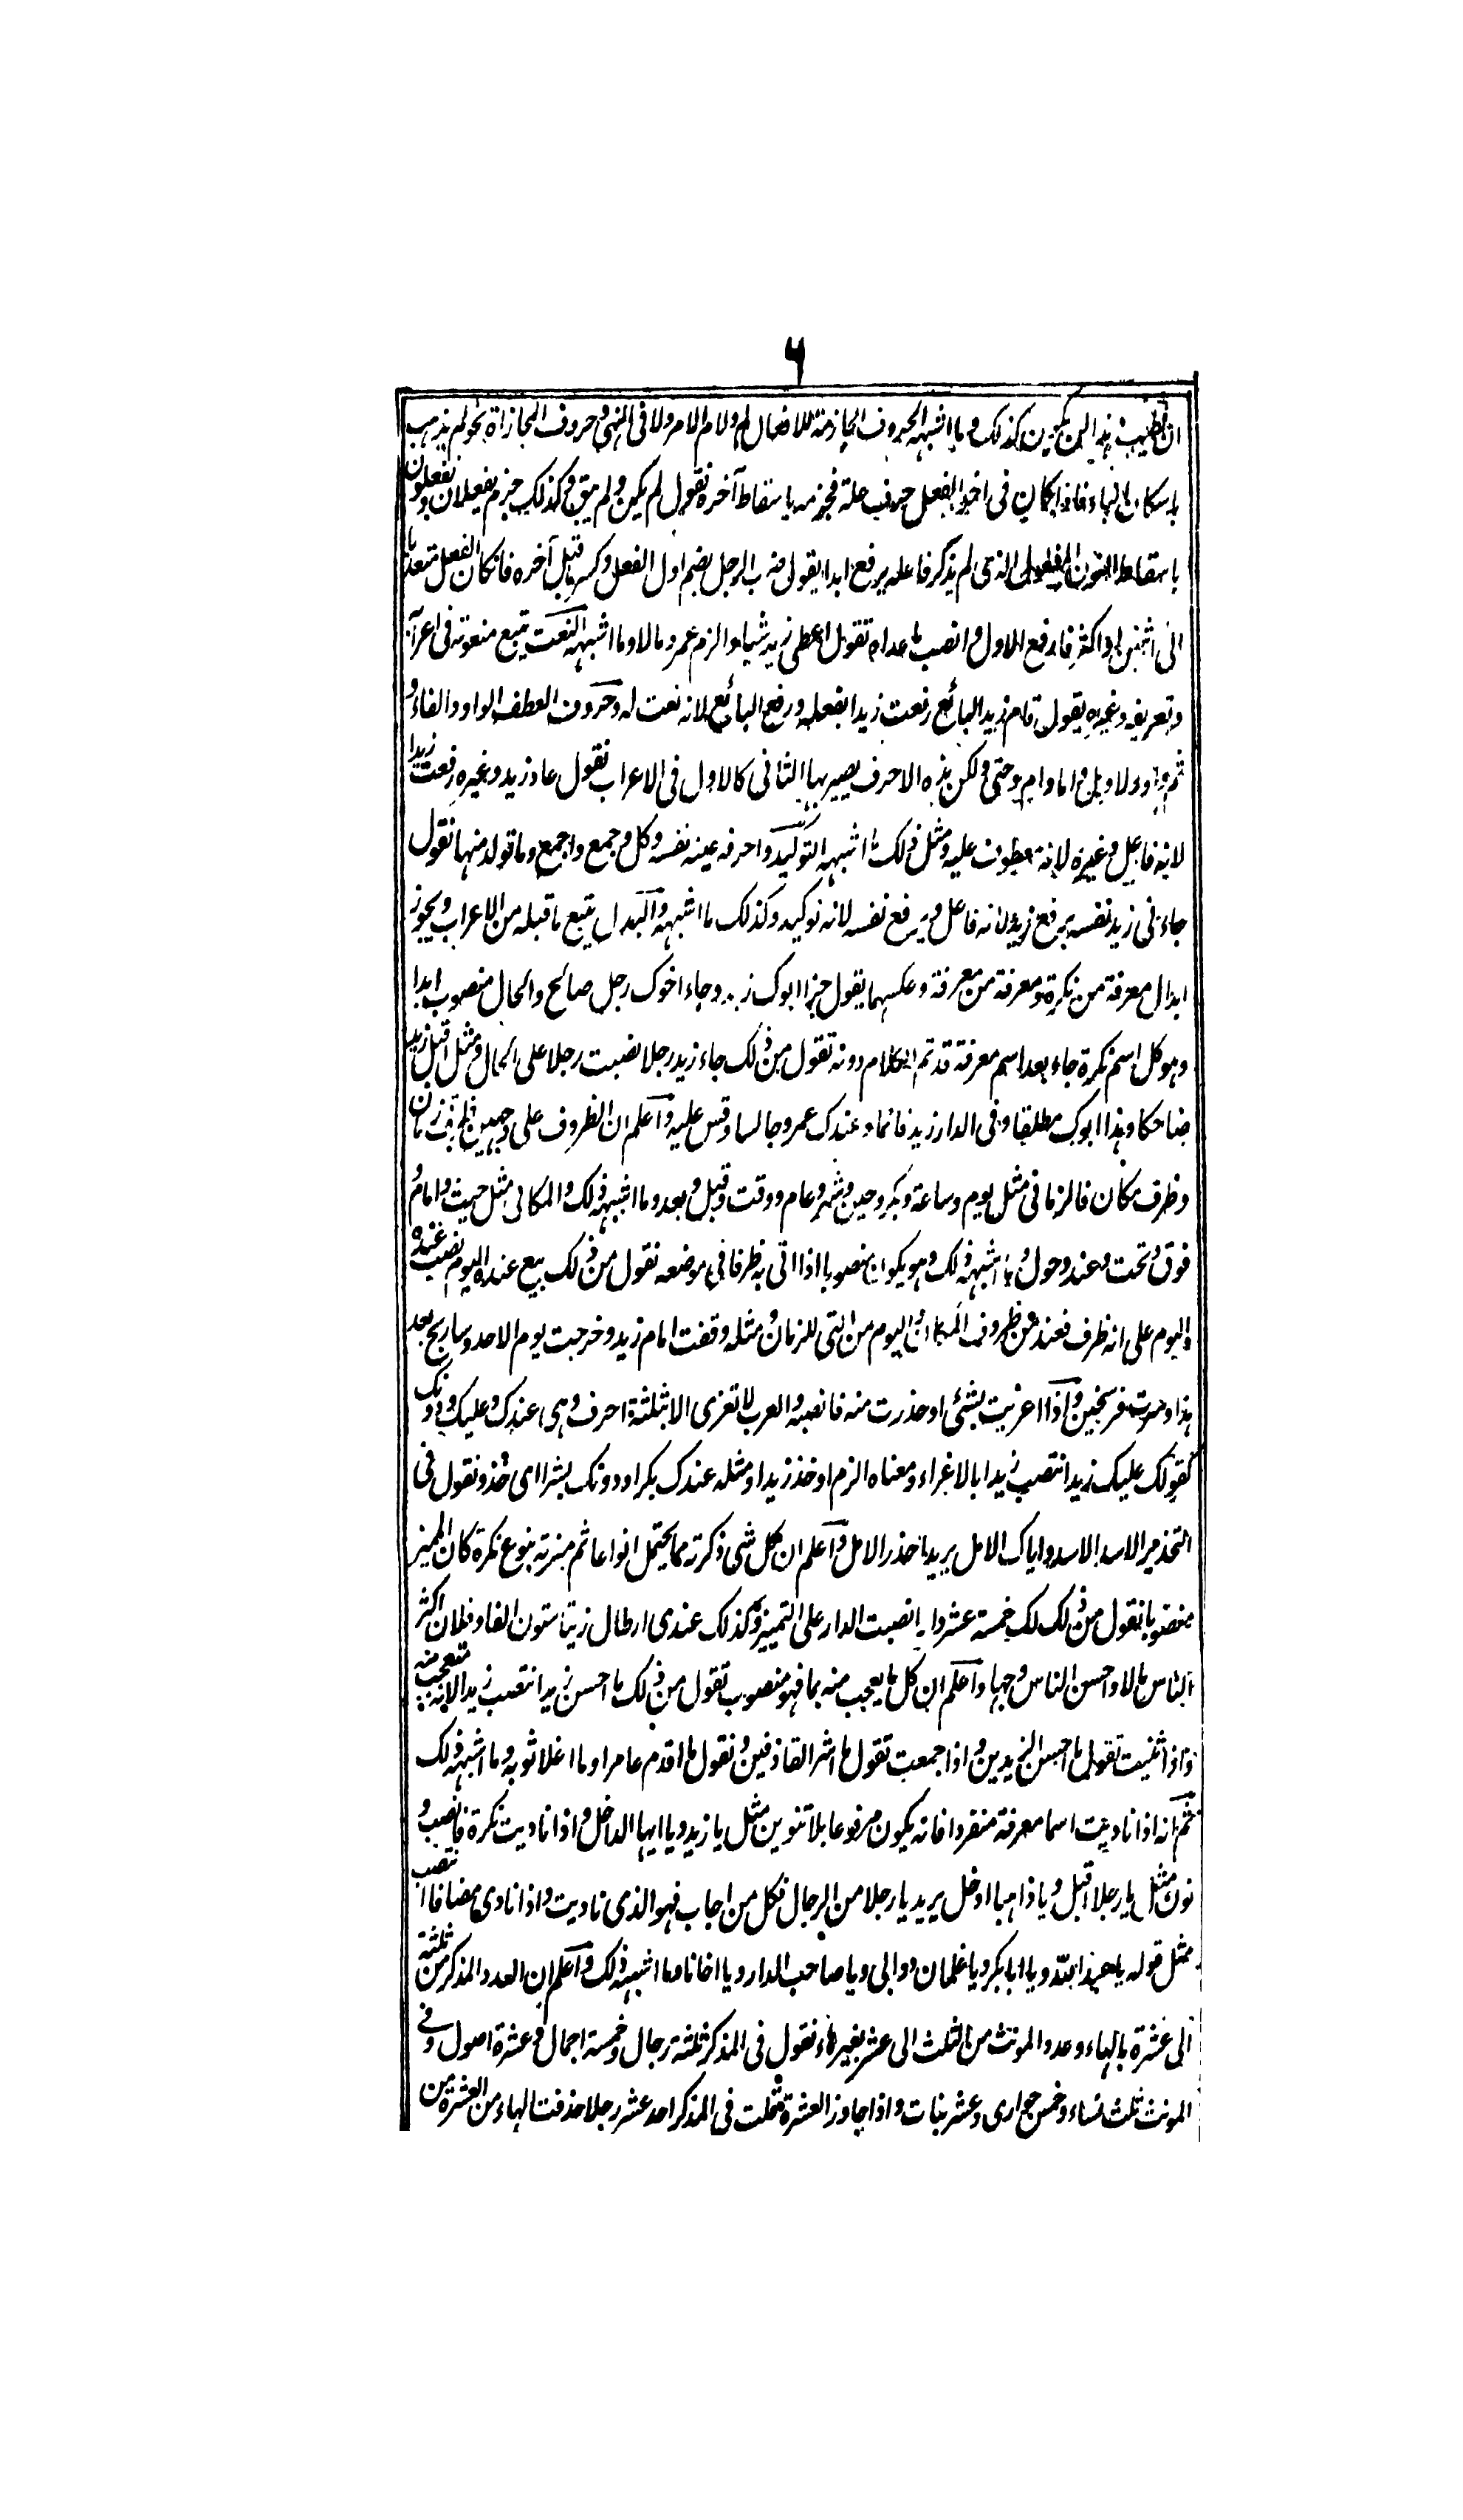 ٦
ان تطيب هذا لمن يكون كذلك وما اشبهه الحروف الجازمة للافعال لم ولام الامر ولا فى النهى وحروف المجازاة نحو لم يذهب
باسكان الباء فاذا كان فى آخر الفعل حرف علة فجزمه باسقاط آخره نقول لم يكن ولم يبق وكذلك جزم يفعلان ويفعلون
باسقاط النون المفعول الذى لم يذكر فاعله يرفع ابدا يقول ضرب الرجل بضم اول الفعل وكسر ما قبل آخره فان كان الفعل متعديا
الى اثنين او اكثر فارفع الاول وانصب ما عداه تقول اعطى زيد شيئا والزم عمرو مالا وما اشبهه النعت يتبع منعوته فى اعرابه
وتعريفه وغيره يقول قام زيد البائع رفعت زيدا بفعله ورفع البائع لانه نعت له وحروف العطف الواو والفاء و
ثم واو ولا وبل واما وام وحتى ولكن هذه الاحرف يصير بها الثانى كالاول فى الاعراب نقول عاد زيد وغيره رفعت زيدا
لانه فاعل وغيره لانه معطوف عليه ومثل ذلك ما اشبهه التوكيد واحرفه عينه نفسه وكل وجمع واجمع وما تولد منها نقول
جاءنى زيد نفسه يرفع زيد لانه فاعل ويرفع نفسه لانه توكيد وكذلك ما اشبهه والبدل يتبع ما قبله من الاعراب ويجوز
ابدال معرفة من نكرة ومعرفة من معرفة وعكسهما يقول جزا ابوك زيد وجاء اخوك رجل صالح والحال منصوب ابدا
وهو كل اسم نكرة جاء بعد اسم معرفة قد تم الكلام دونه تقول من ذلك جاء زيد رجلا نصبت رجلا على الحال ومثل اقبل زيد
ضاحكا وهذا ابوك مطلقا وفى الدار زيد قائما وعندك عمرو جالسا وقس عليه واعلم ان الظروف على وجهين ظرف زمان
وظرف مكان فالزمانى مثل يوم وساعة وبكر وحين وشهر وعام ووقت وقبل وبعد وما اشبه ذلك والمكانى مثل حيث وامام و
فوق وتحت وعند وحول وما اشبه ذلك وهو يكون منصوبا اذا اتى به ظرفا فى موضعه نقول من ذلك بيع عنده اليوم نصبت عنده
واليوم على انه ظرف فعند من ظروف المكان واليوم من التى للزمان ومثله وقفت امام زيد وخرجت يوم الاحد وسار بج بعد
هذا وسرت فرسخين واذا اغريت بشئى او حذرت منه فانصبه والعرب لا تغرى الا بثلثة احرف وهى عندك وعليك ودونك
كقولك عليك زيدا نتصب زيدا بالاغراء ومعناه الزم او خذ زيدا ومثله عندك بكرا ودونك بشرا اى خذ ونقول فى
التحذير الاسد الاسد واياك الامل يريد احذر الامل واعلم ان كل شى ذكرته مما يحتمل انواعا ثم ميزته بنوع نكرة كان المميز
منصوبا نقول من ذلك لك خمسة عشر دارا نصبت الدار على التمييز وكذلك عندى ارطال زيتا ستون الفا وفلان اكثر
الناس مالا واحسن الناس وجها واعلم ان كل ما يعجب منه بما فهو منصوب تقول من ذلك ما احسن زيدا نتصب زيدا لانه متعجب منه
واذا ثنيت تقول ما احسن الزيدين واذا جمعت تقول ما اشر القاذفين ونقول ما اقدم عامرا وما اغلا ثوبه وما اشبه ذلك
ثم انه اذا ناديت اسما معرفة منفردا فانه يكون مرفوعا بلا تنوين مثل يا زيد ويا ايها الداخل واذا ناديت نكرة فانصب و
نون مثل يا رجلا اقبل ويا ذاهبا ادخل يريد يا رجلا من الرجال فكل من اجاب فهو الذى ناديت واذا نادى مضافا انتصب
مثل قوله يا عبد الله ويا ابا بكر ويا غلمان دوالى ويا صاحب الدار ويا اخانا وما اشبه ذلك واعلم ان العدد المذكر من ثلثة
الى عشرة بالهاء وعدد المونث من الثلث الى عشر بغير هاء نقول فى المذكر ثلثة رجال وخمسة اجمال وعشرة اصول وفى
المونث ثلث نساء وخمس جوارى وعشر بنات واذا جاوز العشرة قلت فى المذكر احد عشر رجلا حذفت الهاء من العشرة من